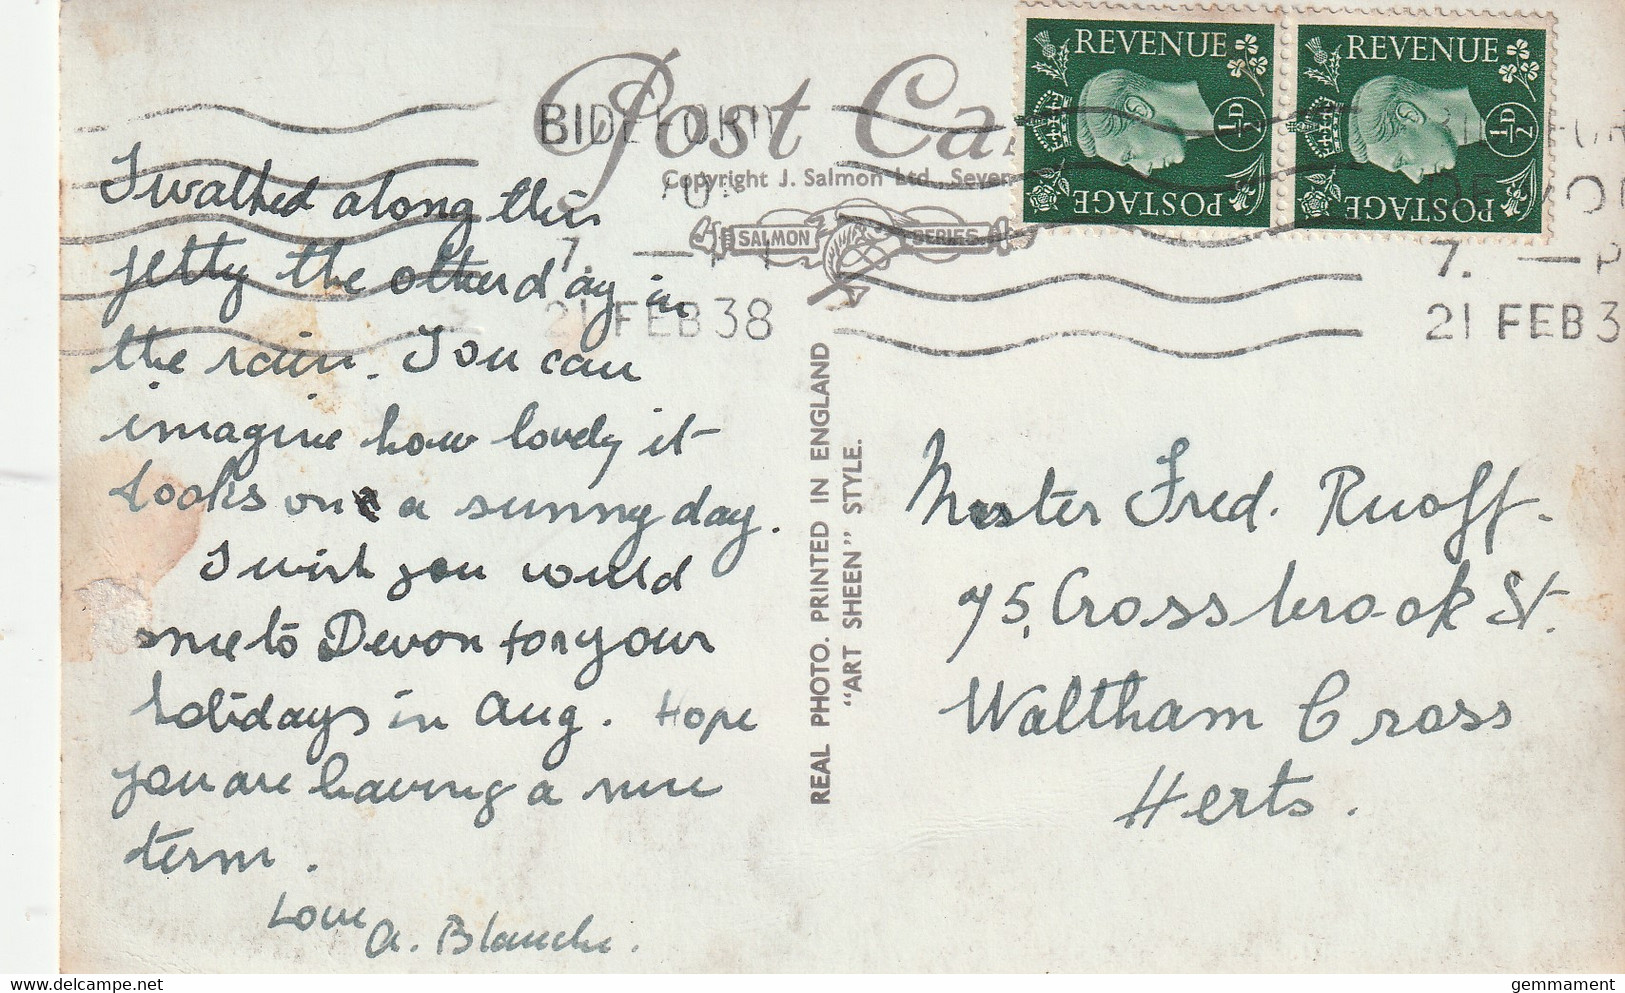 Post Ca
Copyright J. Salmon Ltd., Seven
SALMON SERIES
BIDEFORD
7. — P
21 FEB 38
REVENUE
½D
POSTAGE
REVENUE
½D
POSTAGE
7. — P
21 FEB 3
I walked along this
jetty the other day in
the rain. You can
imagine how lovely it
looks on a sunny day.
I wish you would
come to Devon for your
holidays in Aug. Hope
you are having a nice
term.
Love
A. Blanche.
REAL PHOTO. PRINTED IN ENGLAND
"ART SHEEN" STYLE.
Master Fred. Ruoff.
75, Crossbrook St.
Waltham Cross
Herts.
delcampe.net
gemmament